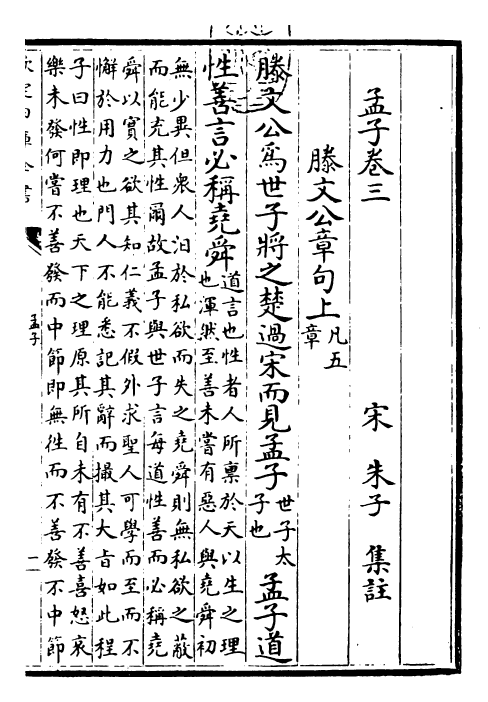 孟子卷三　宋　朱子　集註
滕文公章句上
凡五
章
滕文公爲世子將之楚過宋而見孟子
世子太
子也
孟子道
性善言必稱堯舜
道言也性者人所稟於天以生之理
也渾然至善未嘗有惡人與堯舜初
無少異但衆人汨於私欲而失之堯舜則無私欲之蔽
而能充其性爾故孟子與世子言每道性善而必稱堯
舜以實之欲其知仁義不假外求聖人可學而至而不
懈於用力也門人不能悉記其辭而撮其大旨如此程
子曰性即理也天下之理原其所自未有不善喜怒哀
樂未發何嘗不善發而中節即無徃而不善發不中節
孟子
一